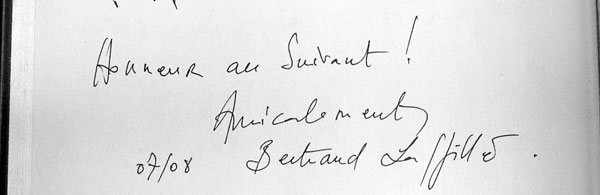 Honneur au Suivant !
Amicalement
07/08 Bertrand Laffillé.